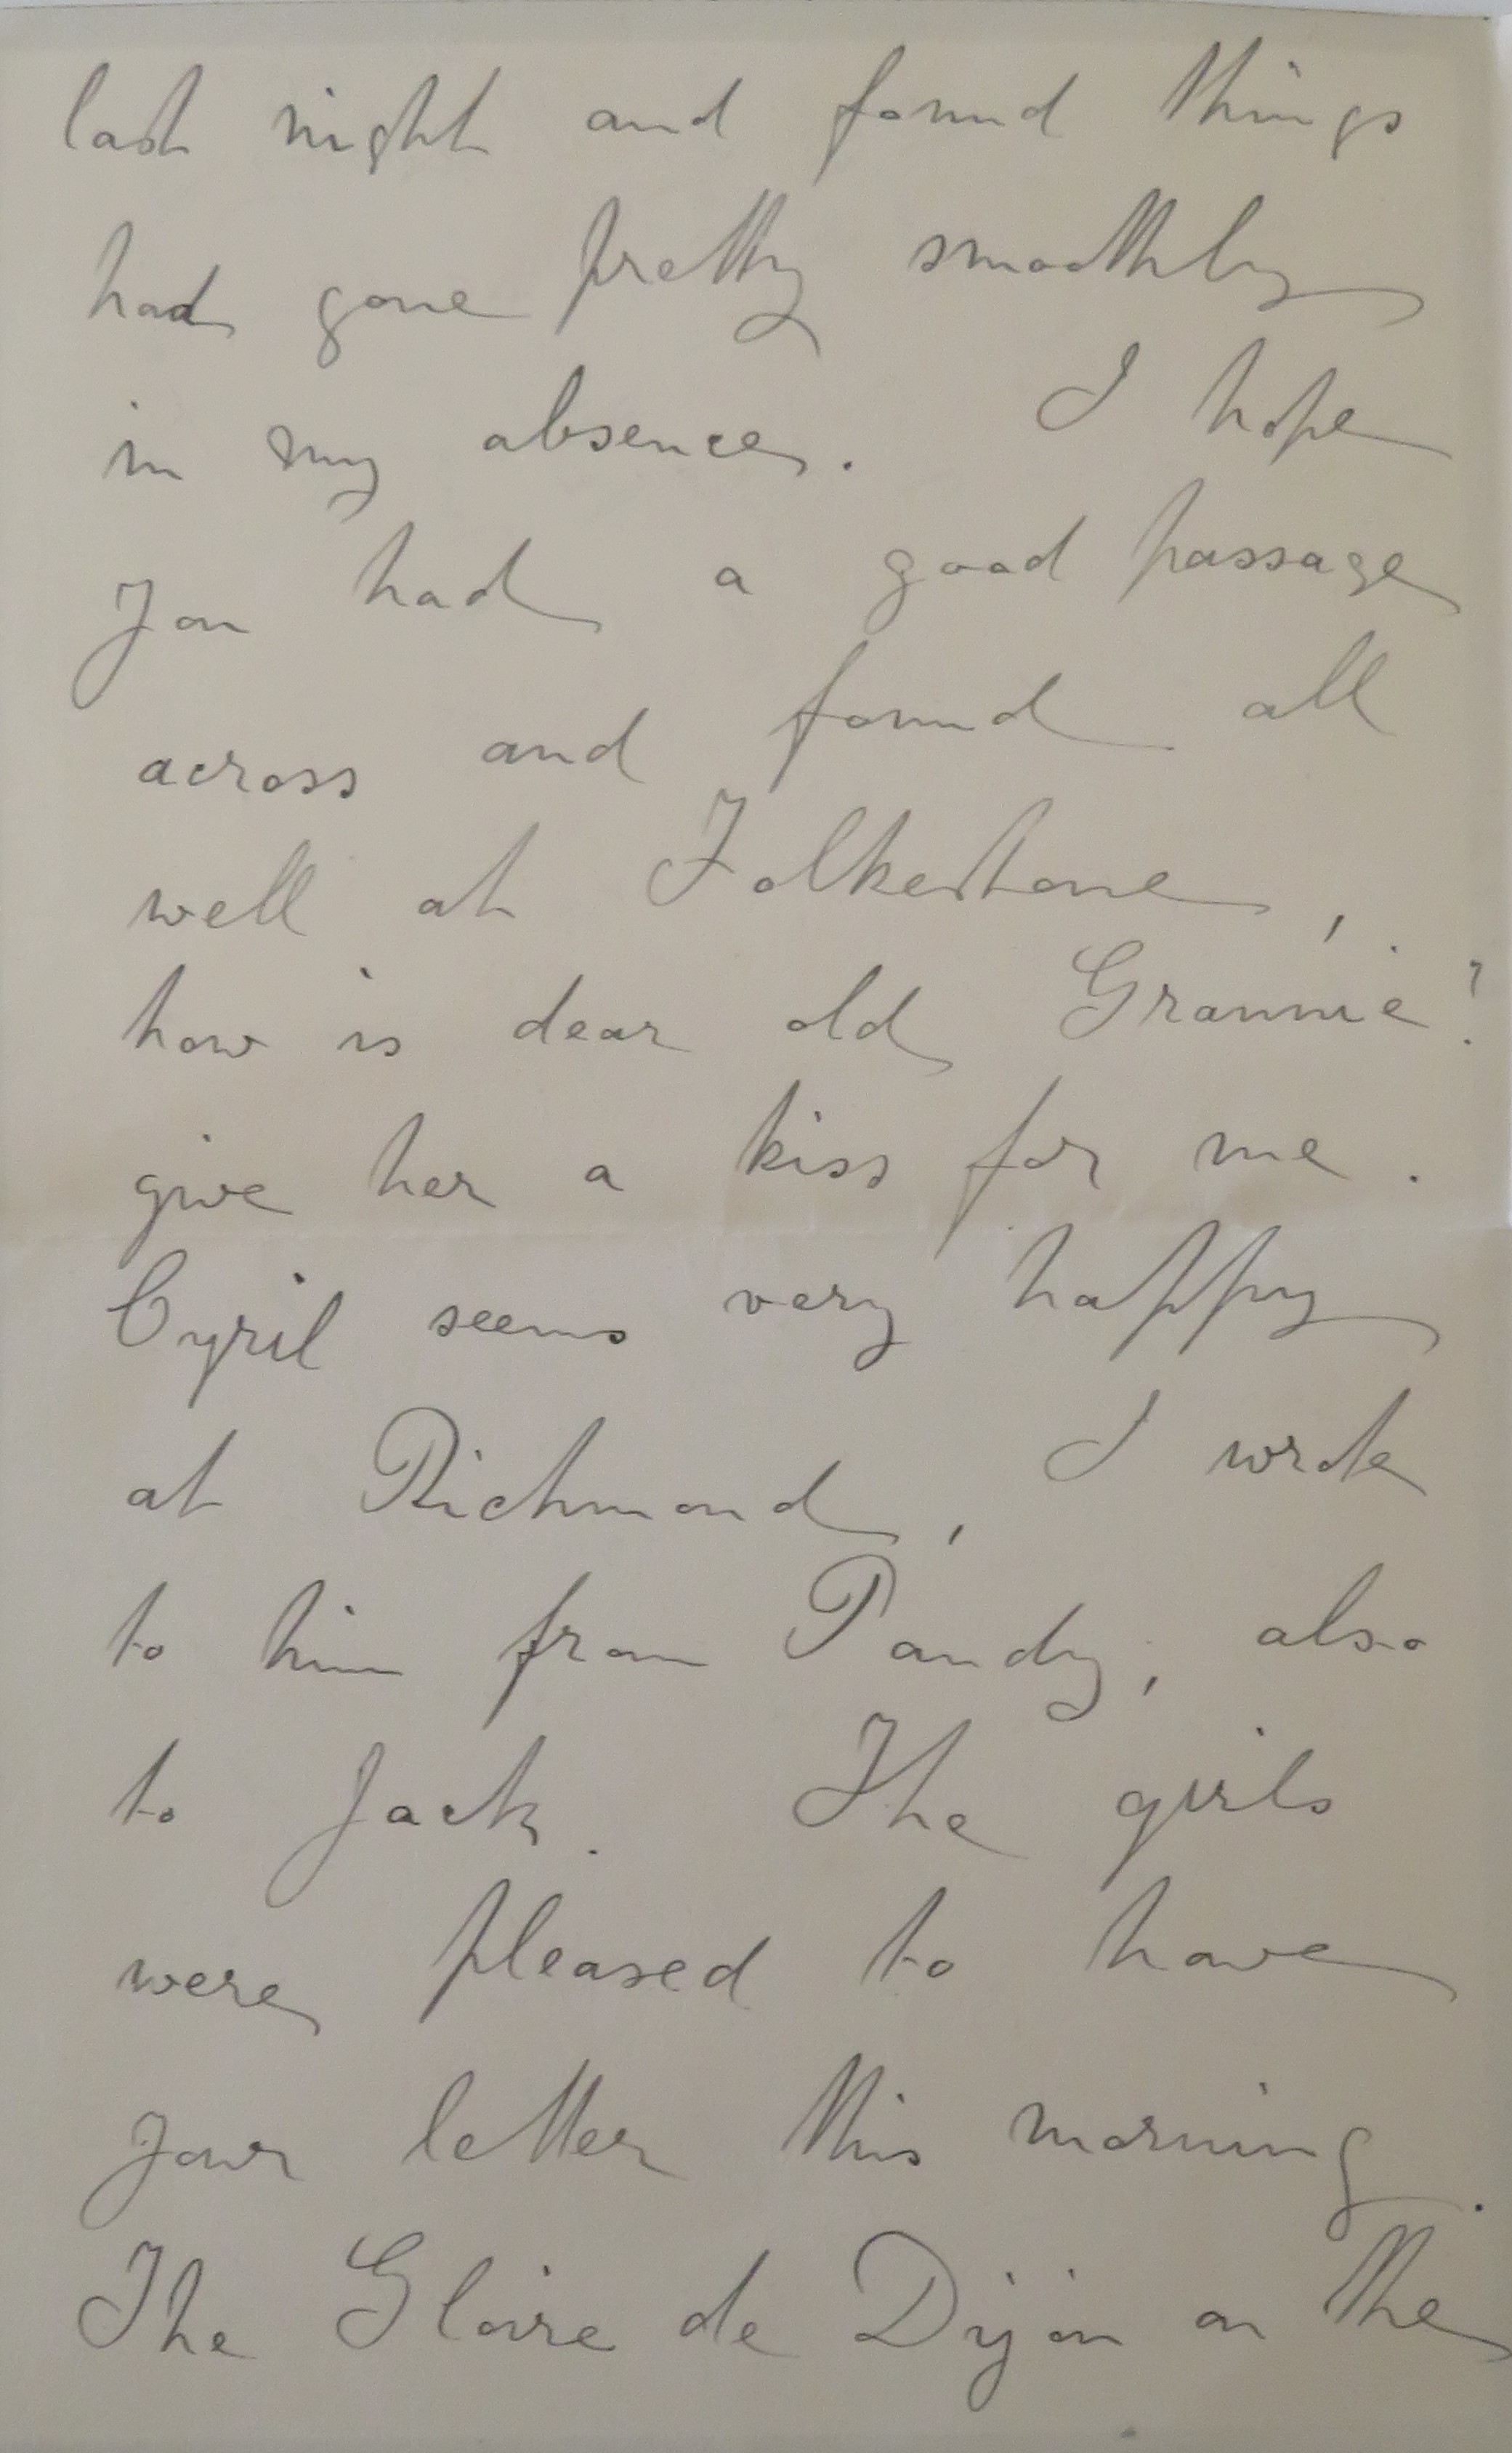 last night and found things
had gone pretty smoothly
in my absence. I hope
you had a good passage
across and found all
well at Folkestone,
how is dear old Grannie?
give her a kiss for me.
Cyril seems very happy
at Richmond, I wrote
to him from Pandy, also
to Jack. The girls
were pleased to have
your letter this morning.
The Gloire de Dijon on the